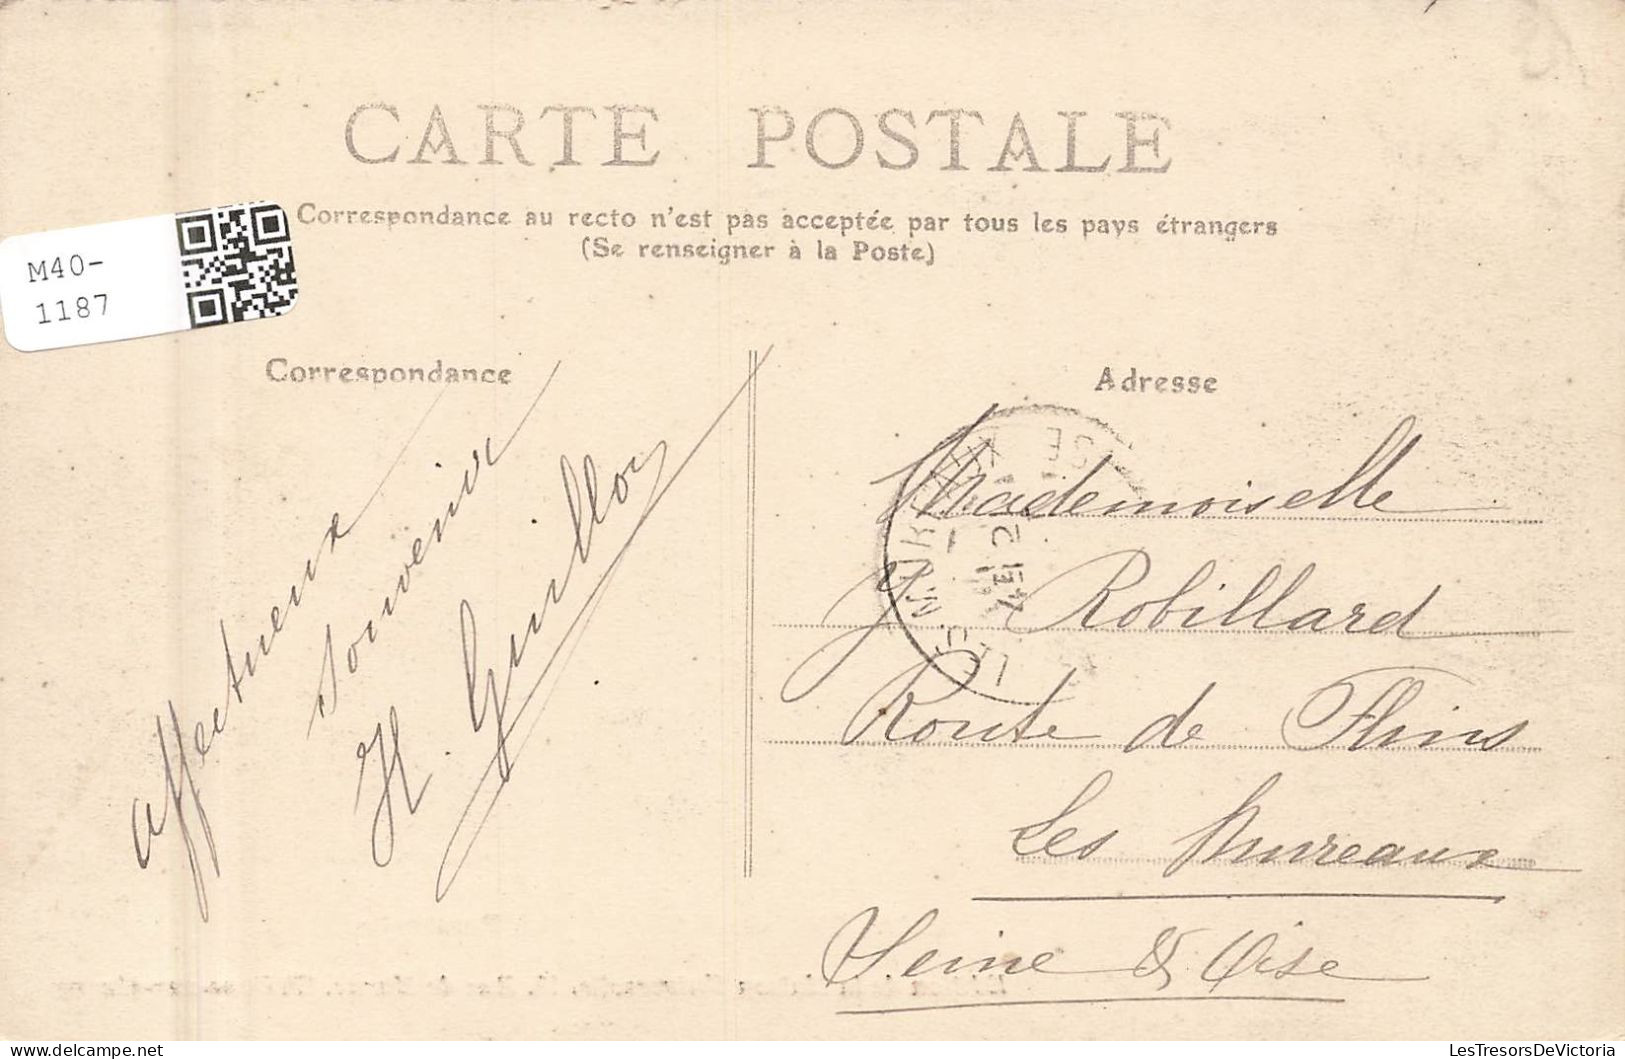 CARTE POSTALE
Correspondance au recto n'est pas acceptée par tous les pays étrangers
(Se renseigner à la Poste)
M40-
1187
Correspondance
Affectueux
Souvenir
H. Guillou
Adresse
Mademoiselle
Robillard
Route de Flins
Les Mureaux
Seine & Oise
LesTresorsDeVictoria